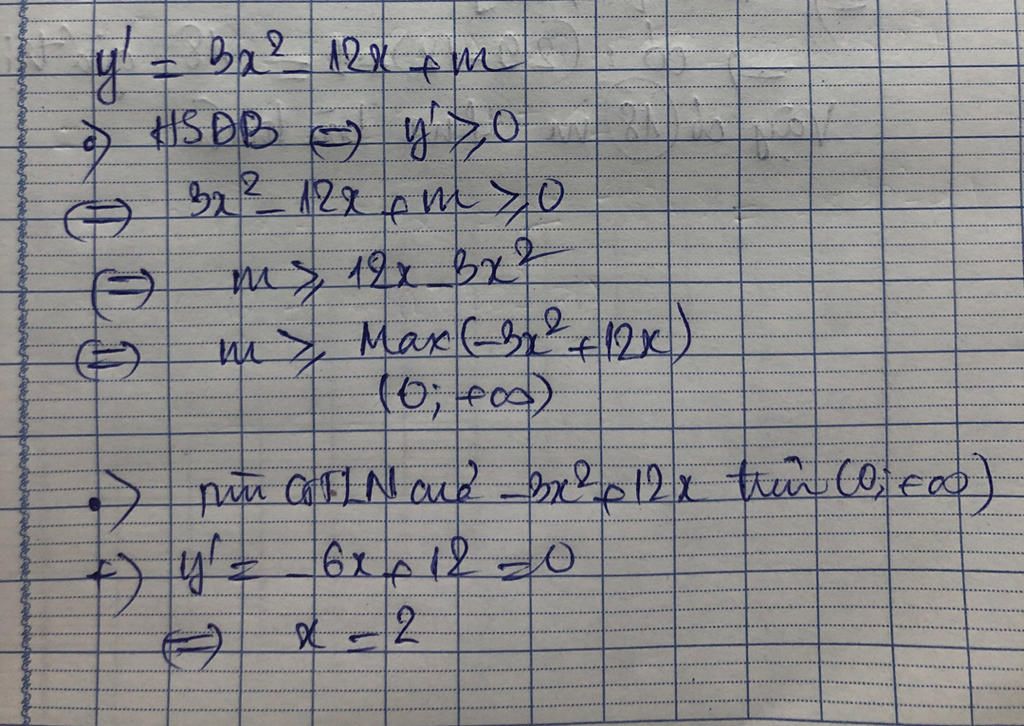 y' = 3x² - 12x + m
•) HSĐB ⇔ y' ≥ 0
⇔ 3x² - 12x + m ≥ 0
⇔ m ≥ 12x - 3x²
⇔ m ≥ Max(-3x² + 12x)
(0; +∞)
•) GTLN của -3x² + 12x trên (0; +∞)
+) y' = -6x + 12 = 0
⇔ x = 2